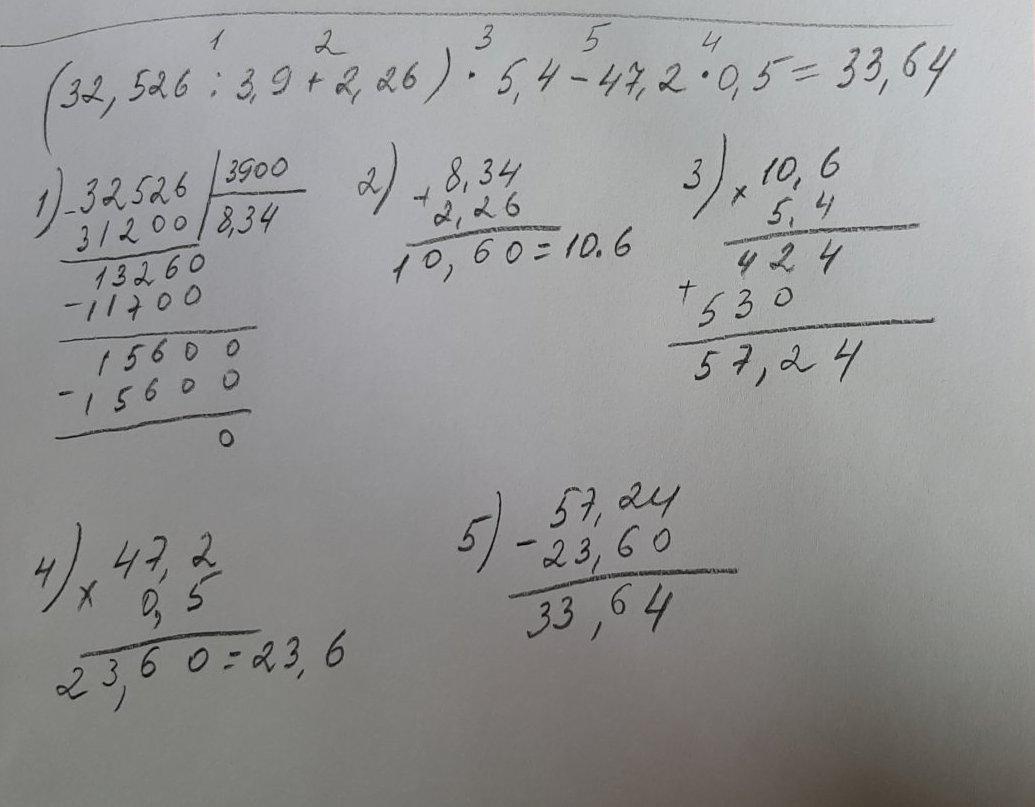 1 2 3 5 4
(32,526 : 3,9 + 2,26) · 5,4 - 47,2 · 0,5 = 33,64
1) - 32526 | 3900
31200 | 8,34
13260
- 11700
15600
- 15600
0
2) + 8,34
2,26
10,60 = 10.6
3) × 10,6
5,4
424
+ 530
57,24
4) × 47,2
0,5
23,60 = 23,6
5) - 57,24
23,60
33,64